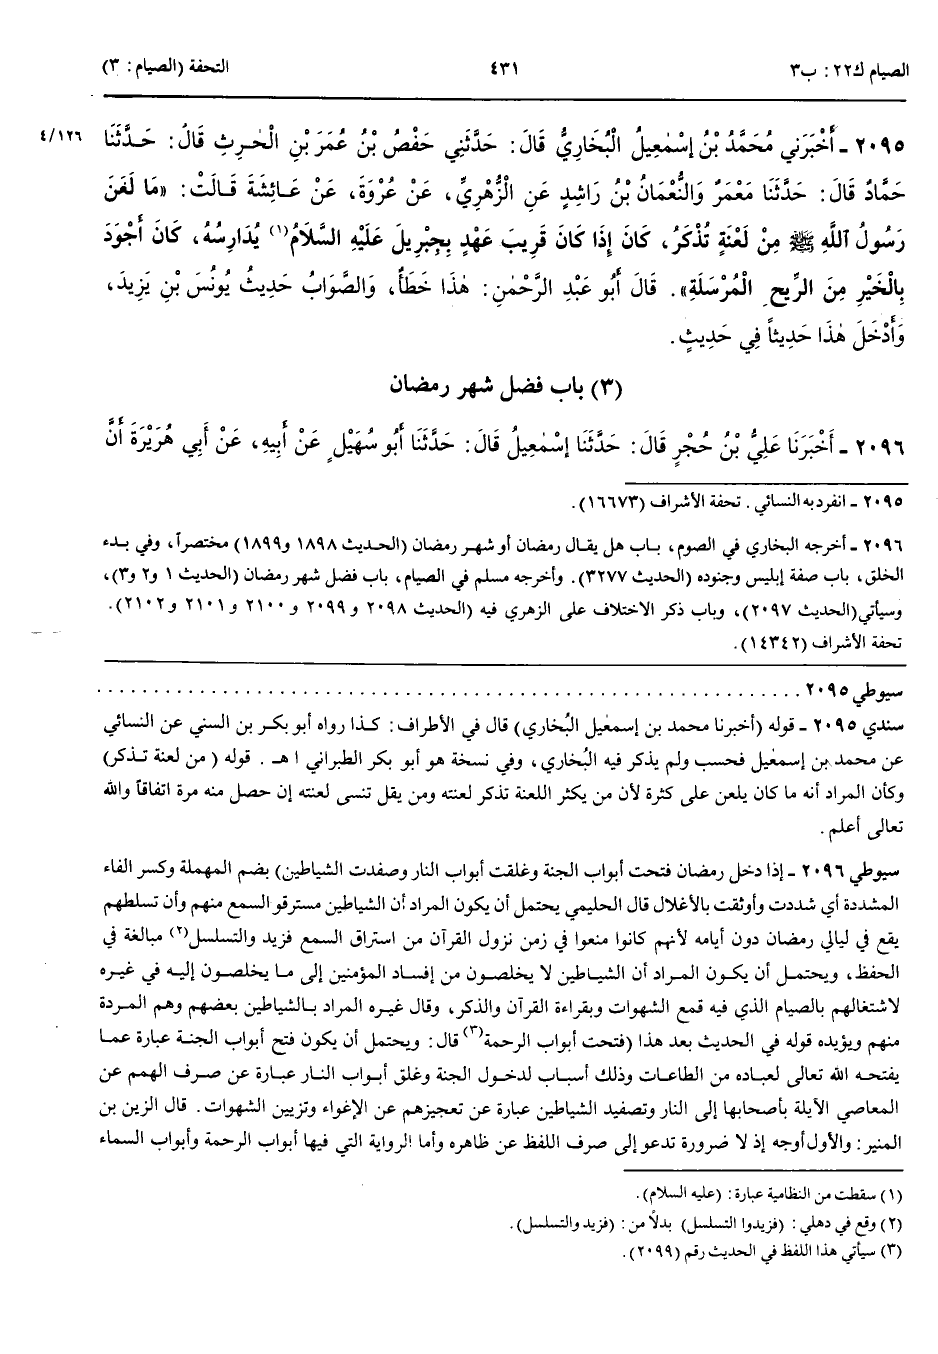 الصيام ك٢٢: ب٣ ٤٣١ التحفة (الصيام: ٣)
٢٠٩٥ ـ أَخْبَرَنِي مُحَمَّدُ بْنُ إِسْمٰعِيلُ الْبُخَارِيُّ قَالَ: حَدَّثَنِي حَفْصُ بْنُ عُمَرَ بْنِ الْحٰرِثِ قَالُ: حَدَّثَنَا ٤/١٢٦
حَمَّادٌ قَالَ: حَدَّثَنَا مَعْمَرٌ وَالنُّعْمَانُ بْنُ رَاشِدٍ عَنِ الْزُّهْرِيِّ، عَنْ عُرْوَةَ، عَنْ عَائِشَةَ قَالَتْ: «مَا لَعَنَ
رَسُولُ اللَّهِ ﷺ مِنْ لَعْنَةٍ تُذْكَرُ، كَانَ إِذَا كَانَ قَرِيبَ عَهْدٍ بِجِبْرِيلَ عَلَيْهِ السَّلَامُ(١) يُدَارِسُهُ، كَانَ أَجْوَدَ
بِالْخَيْرِ مِنَ الرِّيحِ الْمُرْسَلَةِ». قَالَ أَبُو عَبْدِ الرَّحْمٰنِ: هٰذَا خَطَأٌ، وَالصَّوَابُ حَدِيثُ يُونُسَ بْنِ يَزِيدَ،
وَأَدْخَلَ هٰذَا حَدِيثاً فِي حَدِيثٍ.
(٣) باب فضل شهر رمضان
٢٠٩٦ ـ أَخْبَرَنَا عَلِيُّ بْنُ حُجْرٍ قَالَ: حَدَّثَنَا إِسْمٰعِيلُ قَالَ: حَدَّثَنَا أَبُو سُهَيْلٍ عَنْ أَبِيهِ، عَنْ أَبِي هُرَيْرَةَ أَنَّ
٢٠٩٥ ـ انفرد به النسائي. تحفة الأشراف (١٦٦٧٣).
٢٠٩٦ ـ أخرجه البخاري في الصوم، باب هل يقال رمضان أو شهر رمضان (الحديث ١٨٩٨ و١٨٩٩) مختصراً، وفي بدء
الخلق، باب صفة إبليس وجنوده (الحديث ٣٢٧٧). وأخرجه مسلم في الصيام، باب فضل شهر رمضان (الحديث ١ و٢ و٣)،
وسيأتي (الحديث ٢٠٩٧)، وباب ذكر الاختلاف على الزهري فيه (الحديث ٢٠٩٨ و ٢٠٩٩ و ٢١٠٠ و ٢١٠١ و ٢١٠٢).
تحفة الأشراف (١٤٣٤٢).
سيوطي ٢٠٩٥ ........................................
سندي ٢٠٩٥ ـ قوله (أخبرنا محمد بن إسمعيل البُخاري) قال في الأطراف: كذا رواه أبو بكر بن السني عن النسائي
عن محمد بن إسمعيل فحسب ولم يذكر فيه البُخاري، وفي نسخة هو أبو بكر الطبراني اهـ. قوله (من لعنة تذكر)
وكأن المراد أنه ما كان يلعن على كثرة لأن من يكثر اللعنة تذكر لعنته ومن يقل تنسى لعنته إن حصل منه مرة اتفاقاً والله
تعالى أعلم.
سيوطي ٢٠٩٦ ـ (إذا دخل رمضان فتحت أبواب الجنة وغلقت أبواب النار وصفدت الشياطين) بضم المهملة وكسر الفاء
المشددة أي شددت وأوثقت بالأغلال قال الحليمي يحتمل أن يكون المراد أن الشياطين مسترقو السمع منهم وأن تسلطهم
يقع في ليالي رمضان دون أيامه لأنهم كانوا منعوا في زمن نزول القرآن من استراق السمع فزيد والتسلسل(٢) مبالغة في
الحفظ، ويحتمل أن يكون المراد أن الشياطين لا يخلصون من إفساد المؤمنين إلى ما يخلصون إليه في غيره
لاشتغالهم بالصيام الذي فيه قمع الشهوات وبقراءة القرآن والذكر، وقال غيره المراد بالشياطين بعضهم وهم المردة
منهم ويؤيده قوله في الحديث بعد هذا (فتحت أبواب الرحمة)(٣) قال: ويحتمل أن يكون فتح أبواب الجنة عبارة عما
يفتحه الله تعالى لعباده من الطاعات وذلك أسباب لدخول الجنة وغلق أبواب النار عبارة عن صرف الهمم عن
المعاصي الآيلة بأصحابها إلى النار وتصفيد الشياطين عبارة عن تعجيزهم عن الإغواء وتزيين الشهوات. قال الزين بن
المنير: والأول أوجه إذ لا ضرورة تدعو إلى صرف اللفظ عن ظاهره وأما الرواية التي فيها أبواب الرحمة وأبواب السماء
(١) سقطت من النظامية عبارة: (عليه السلام).
(٢) وقع في دهلي: (فزيدوا التسلسل) بدلاً من: (فزيد والتسلسل).
(٣) سيأتي هذا اللفظ في الحديث رقم (٢٠٩٩).